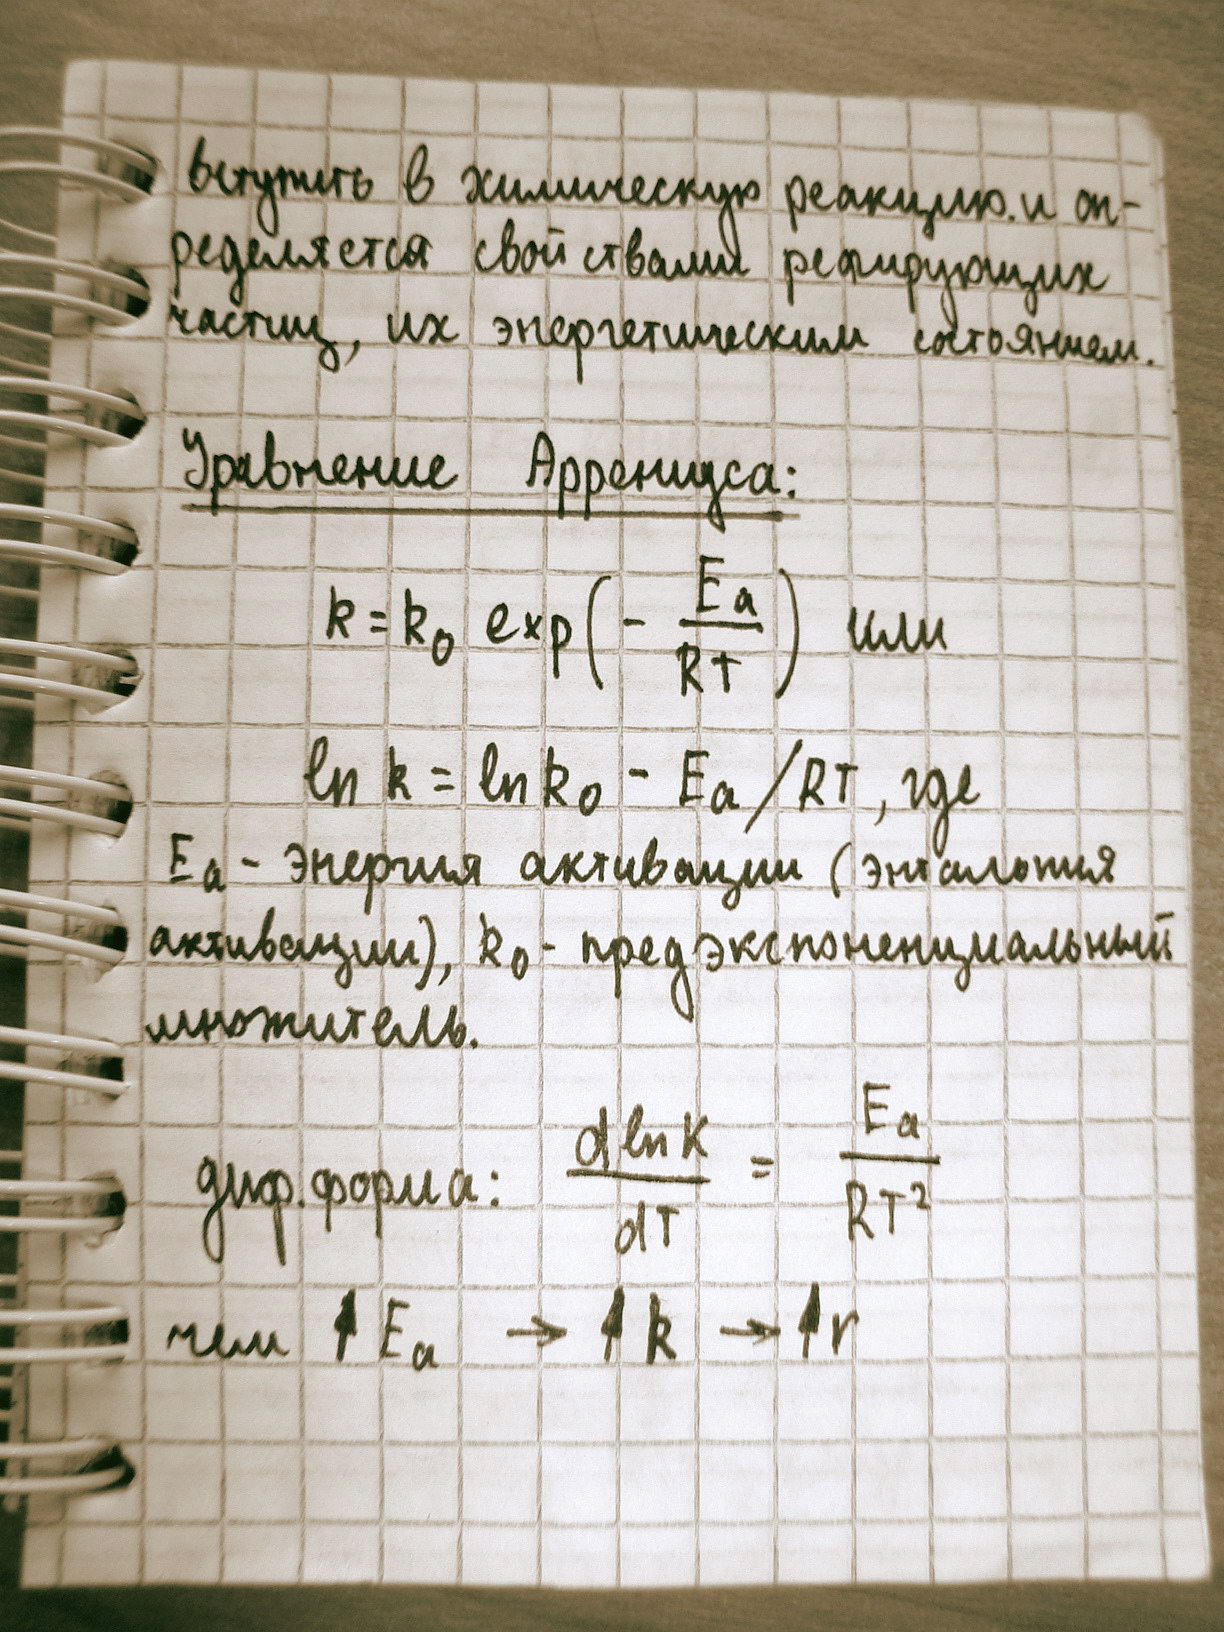 вступить в химическую реакцию.и оп-
ределяется свойствами реагирующих
частиц, их энергетическим состоянием.
Уравнение Аррениуса:
k = k₀ exp(- Ea/RT) или
ln k = ln k₀ - Ea/RT, где
Ea - энергия активации (энтальпия
активации), k₀ - предэкспоненциальный
множитель.
диф.форма: d ln K/dT = Ea/RT²
чем ↑ Ea → ↑ k → ↑ r